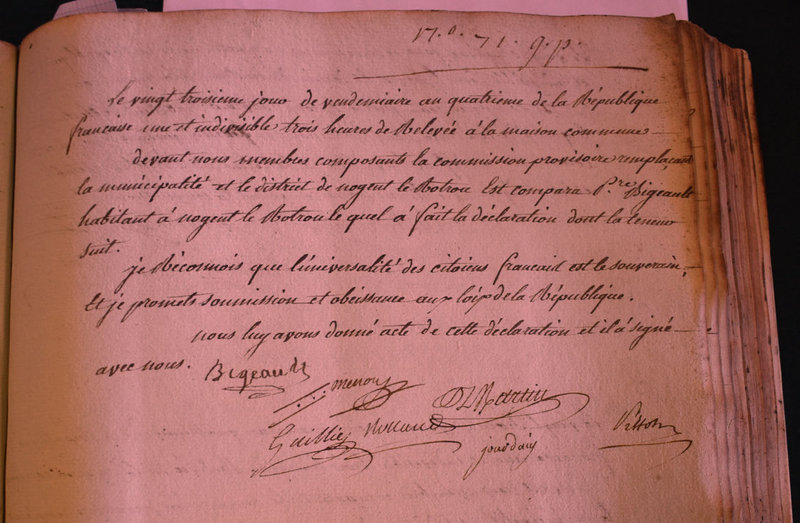 17.0. 71. 9.p.
Le vingt troisieme jour de vendemiaire an quatrieme de la République
francaise une et indivisible trois heures de Relevée à la maison commune
devant nous membres composants la commission provisoire remplaçant
la municipalité et le district de nogent le Rotrou Est compara P.re Bigeault
habitant à nogent le Rotrou le quel à fait la déclaration dont la teneur
suit.
je Réconnois que l'universalité des citoiens francais est le souverain,
Et je promets soumission et obeissance aux loix de la République.
nous luy avons donné acte de cette déclaration et il à signé
avec nous. Bigeault
Martin
Guillier Rolland
jourdain